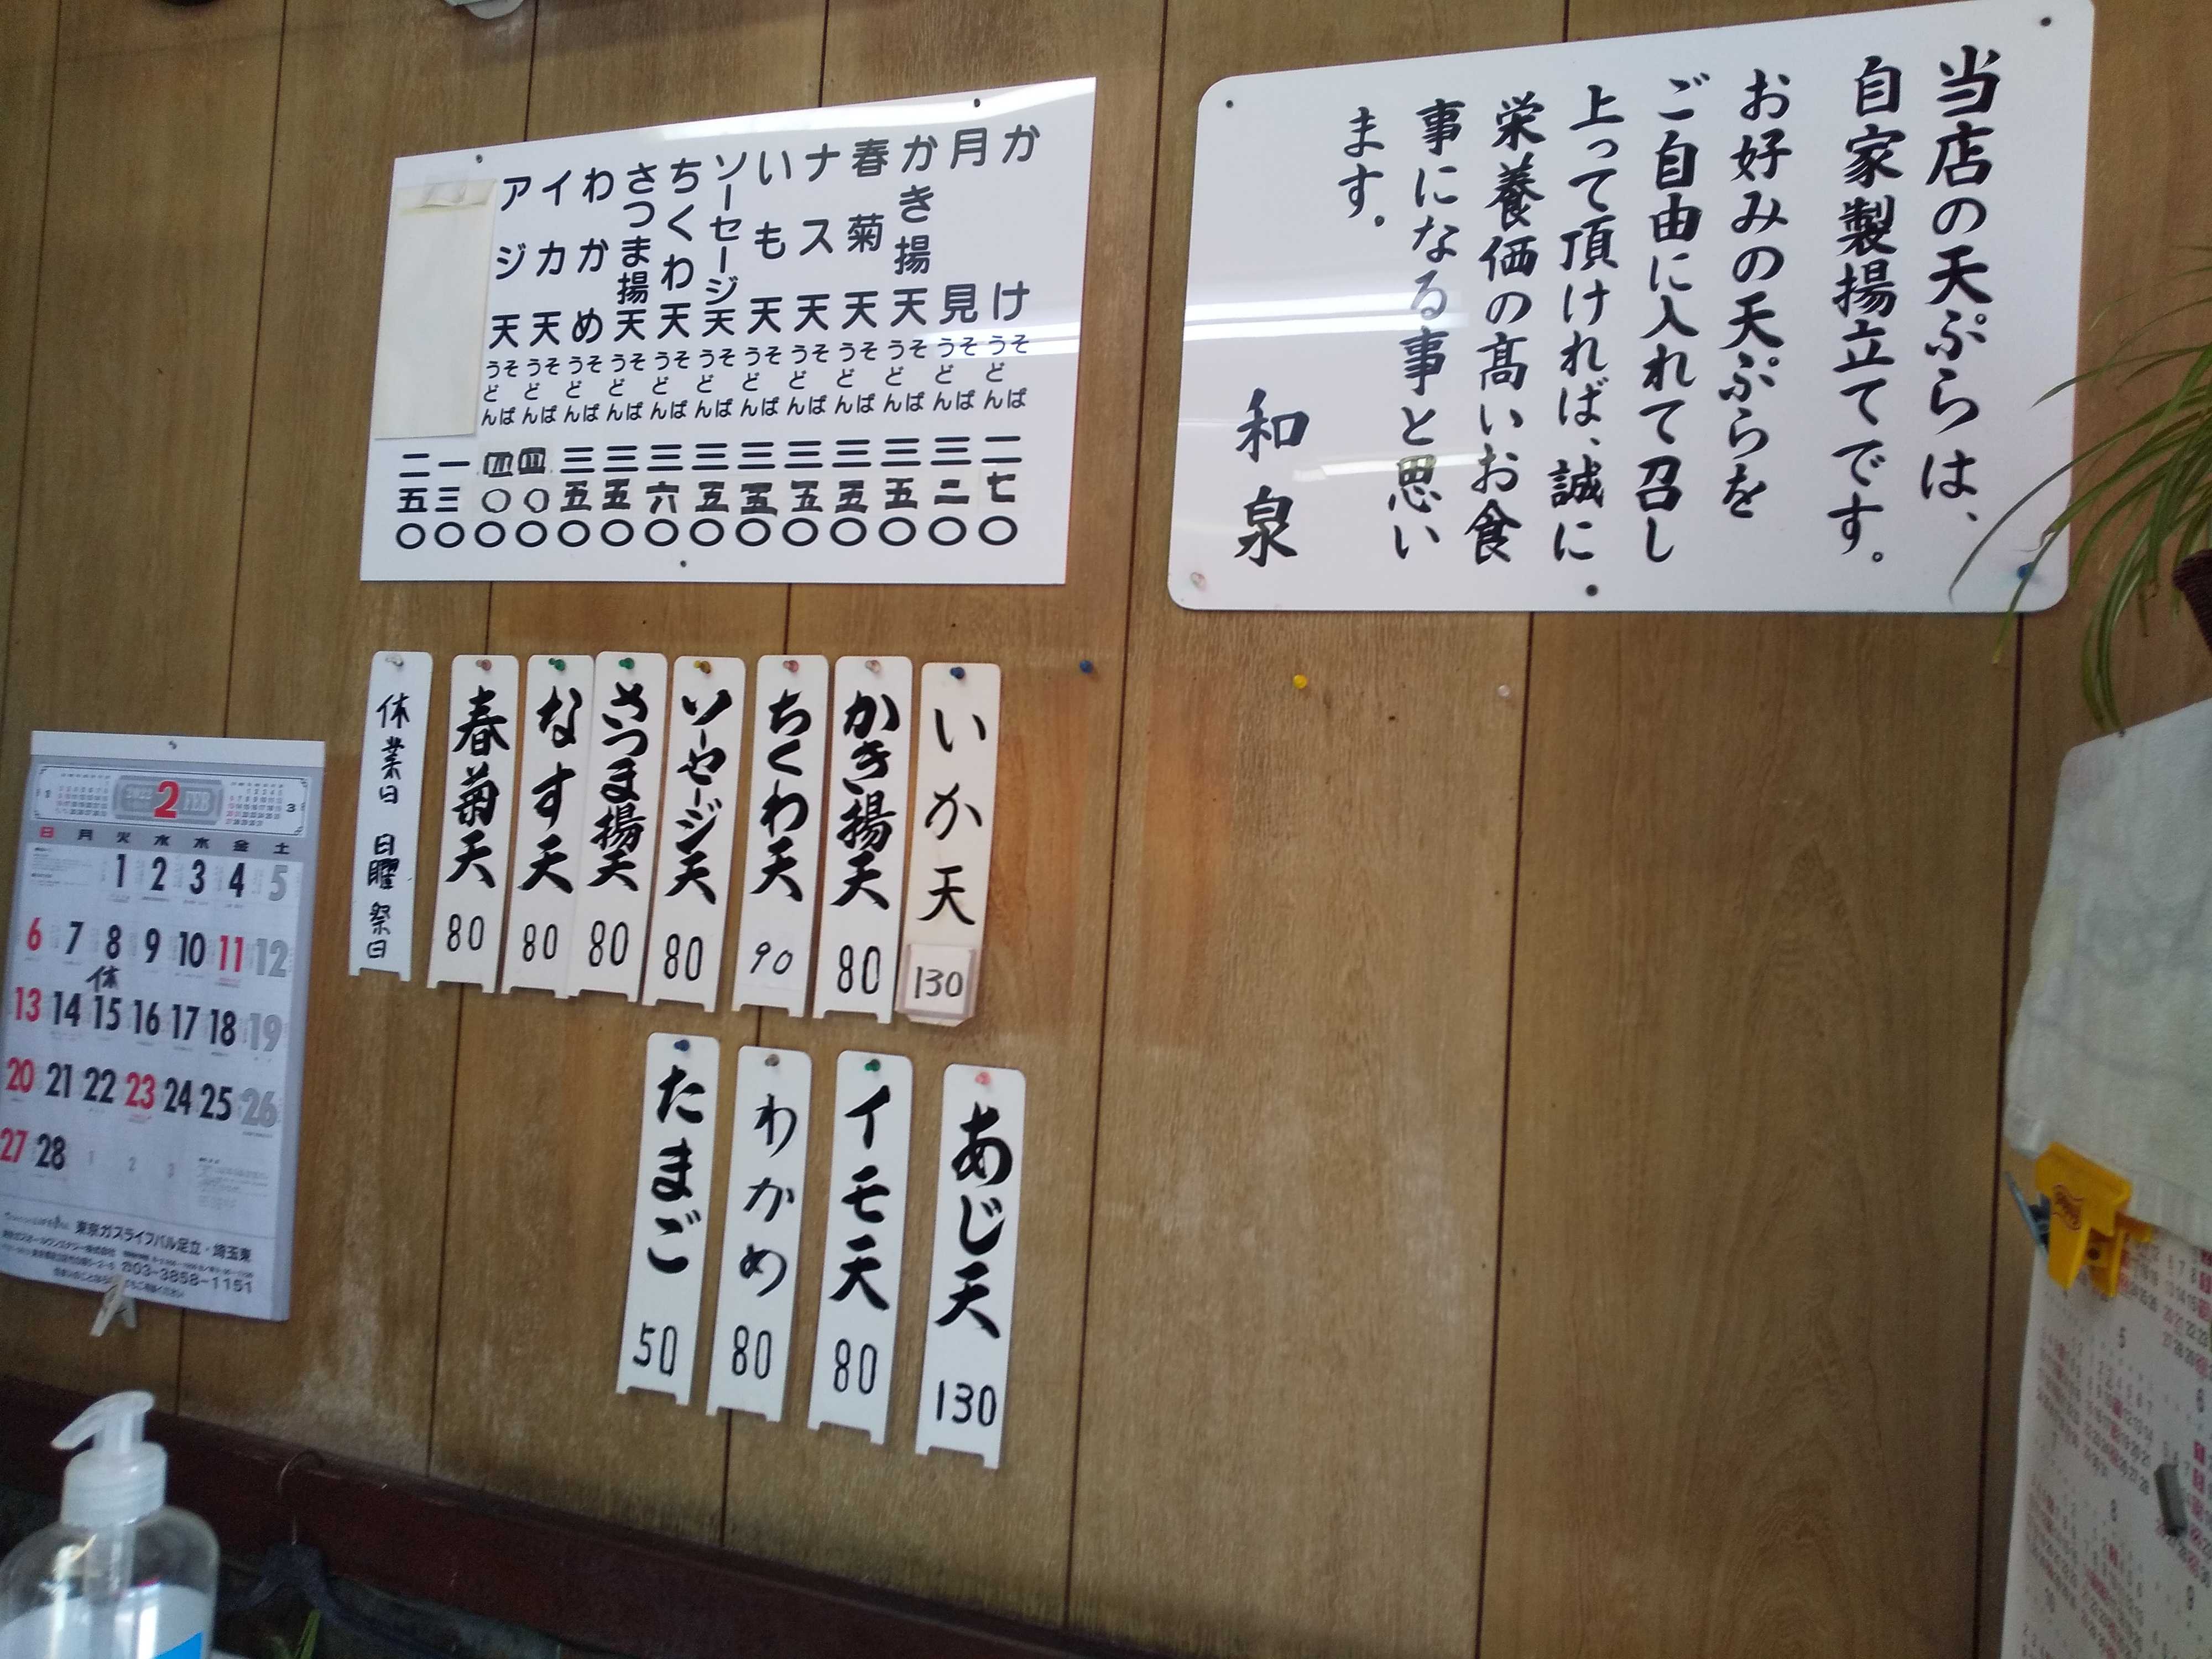 当店の天ぷらは、
自家製揚立てです。
お好みの天ぷらを
ご自由に入れて召し
上って頂ければ、誠に
栄養価の髙いお食
事になる事と思い
ます。
和泉
かけ そば うどん 二七〇
月見 そば うどん 三二〇
かき揚天 そば うどん 三五〇
春菊天 そば うどん 三五〇
ナス天 そば うどん 三五〇
いも天 そば うどん 三五〇
ソーセージ天 そば うどん 三五〇
ちくわ天 そば うどん 三六〇
さつま揚天 そば うどん 三五〇
わかめ そば うどん 三五〇
イカ天 そば うどん 四〇〇
アジ天 そば うどん 四〇〇
一三〇
二五〇
いか天 130
かき揚天 80
ちくわ天 90
ソーセージ天 80
さつま揚天 80
なす天 80
春菊天 80
休業日 日曜 祭日
あじ天 130
イモ天 80
わかめ 80
たまご 50
1 2022 2 FEB 3
日 月 火 水 木 金 土
1 2 3 4 5
6 7 8 9 10 11 12
休
13 14 15 16 17 18 19
20 21 22 23 24 25 26
27 28 1 2 3
東京ガスライフバル足立・埼玉東
03-3858-1151
5
6
8
9
10